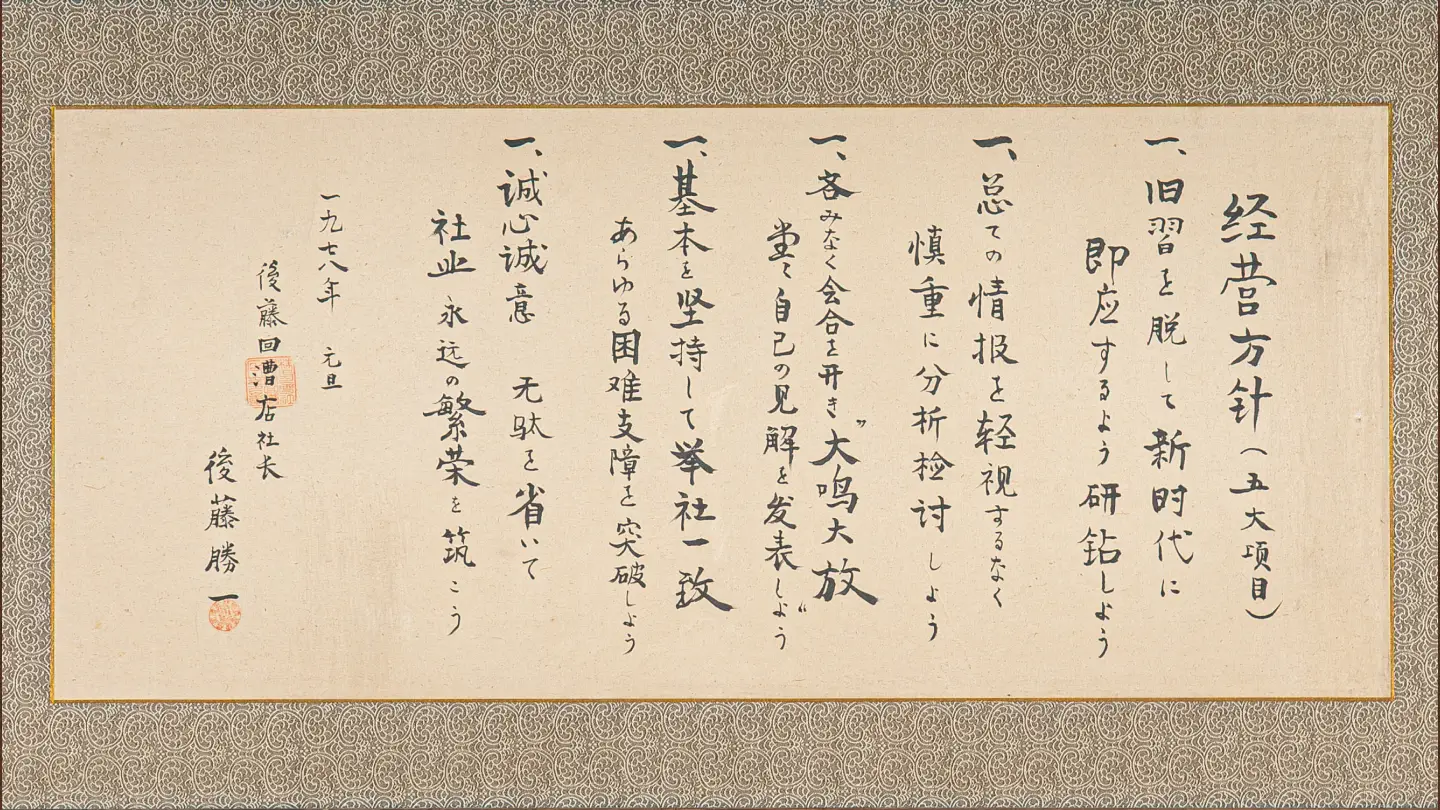 经营方针(五大项目)
一、旧習を脱して新时代に
即应するよう研钻しよう
一、总ての情报を轻視するなく
慎重に分析检討しよう
一、吝みなく会合を开き〝大鸣大放〟
堂々自己の見解を发表しよう
一、基本を坚持して举社一致
あらゆる困难支障を突破しよう
一、诚心诚意 无駄を省いて
社业永远の繁荣を筑こう
一九七八年 元旦
後藤回漕店社长
後藤勝一